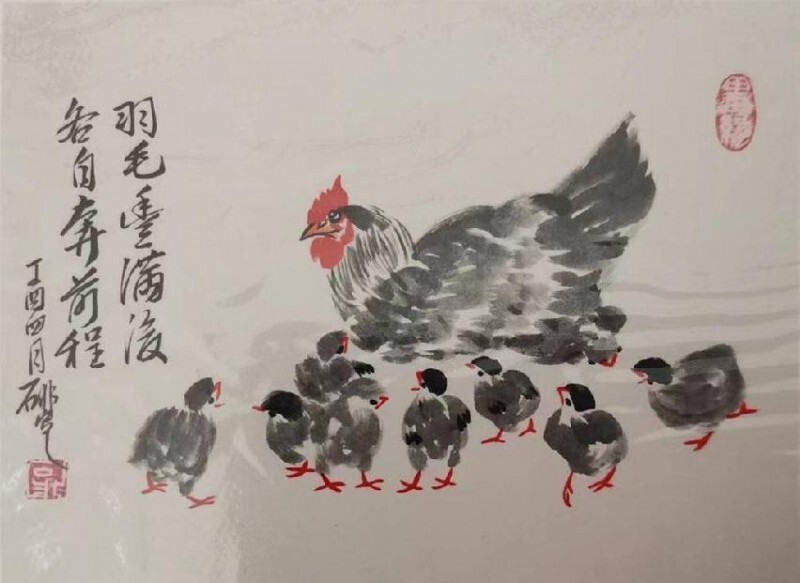 羽毛丰满后
各自奔前程
丁酉四月